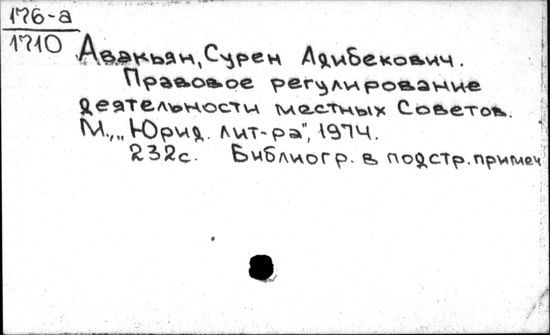 176-а
1710
Авакьян, Сурен Адибекович.
Правовое регулирование
деятельности местных Советов.
М., „Юрид. лит-ра", 1974.
232с. Библиогр. в подстр. примеч